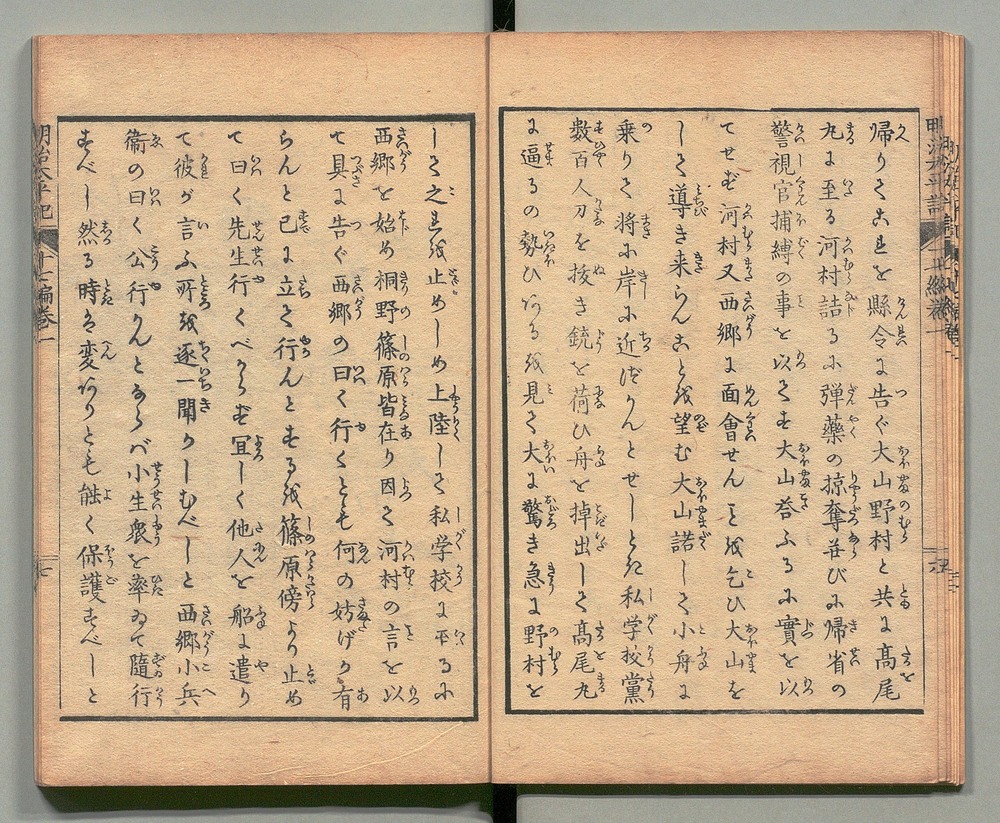 帰りてこれを縣令に告ぐ大山野村と共に髙尾
丸に至る河村詰るに弾藥の掠奪并びに帰省の
警視官捕縛の事を以てす大山答ふるに實を以
てせず河村又西郷に面會せんことを乞ひ大山を
して導き来らんことを望む大山諾して小舟に
乗りて将に岸に近づかんとせしとき私学校黨
数百人刀を抜き銃を荷ひ舟を掉出して髙尾丸
に逼るの勢ひあるを見て大に驚き急に野村を
して之れを止めしめ上陸して私学校に至るに
西郷を始め桐野篠原皆在り因て河村の言を以
て具に告ぐ西郷の曰く行くとも何の妨げか有
らんと已に立て行んとするを篠原傍より止め
て曰く先生行くべからず冝しく他人を船に遣り
て彼が言ふ所を逐一聞かしむべしと西郷小兵
衞の曰く公行かんとならバ小生衆を率ゐて隨行
すべし然る時は変ありとも能く保護すべしと
明治太平記
十七編巻一